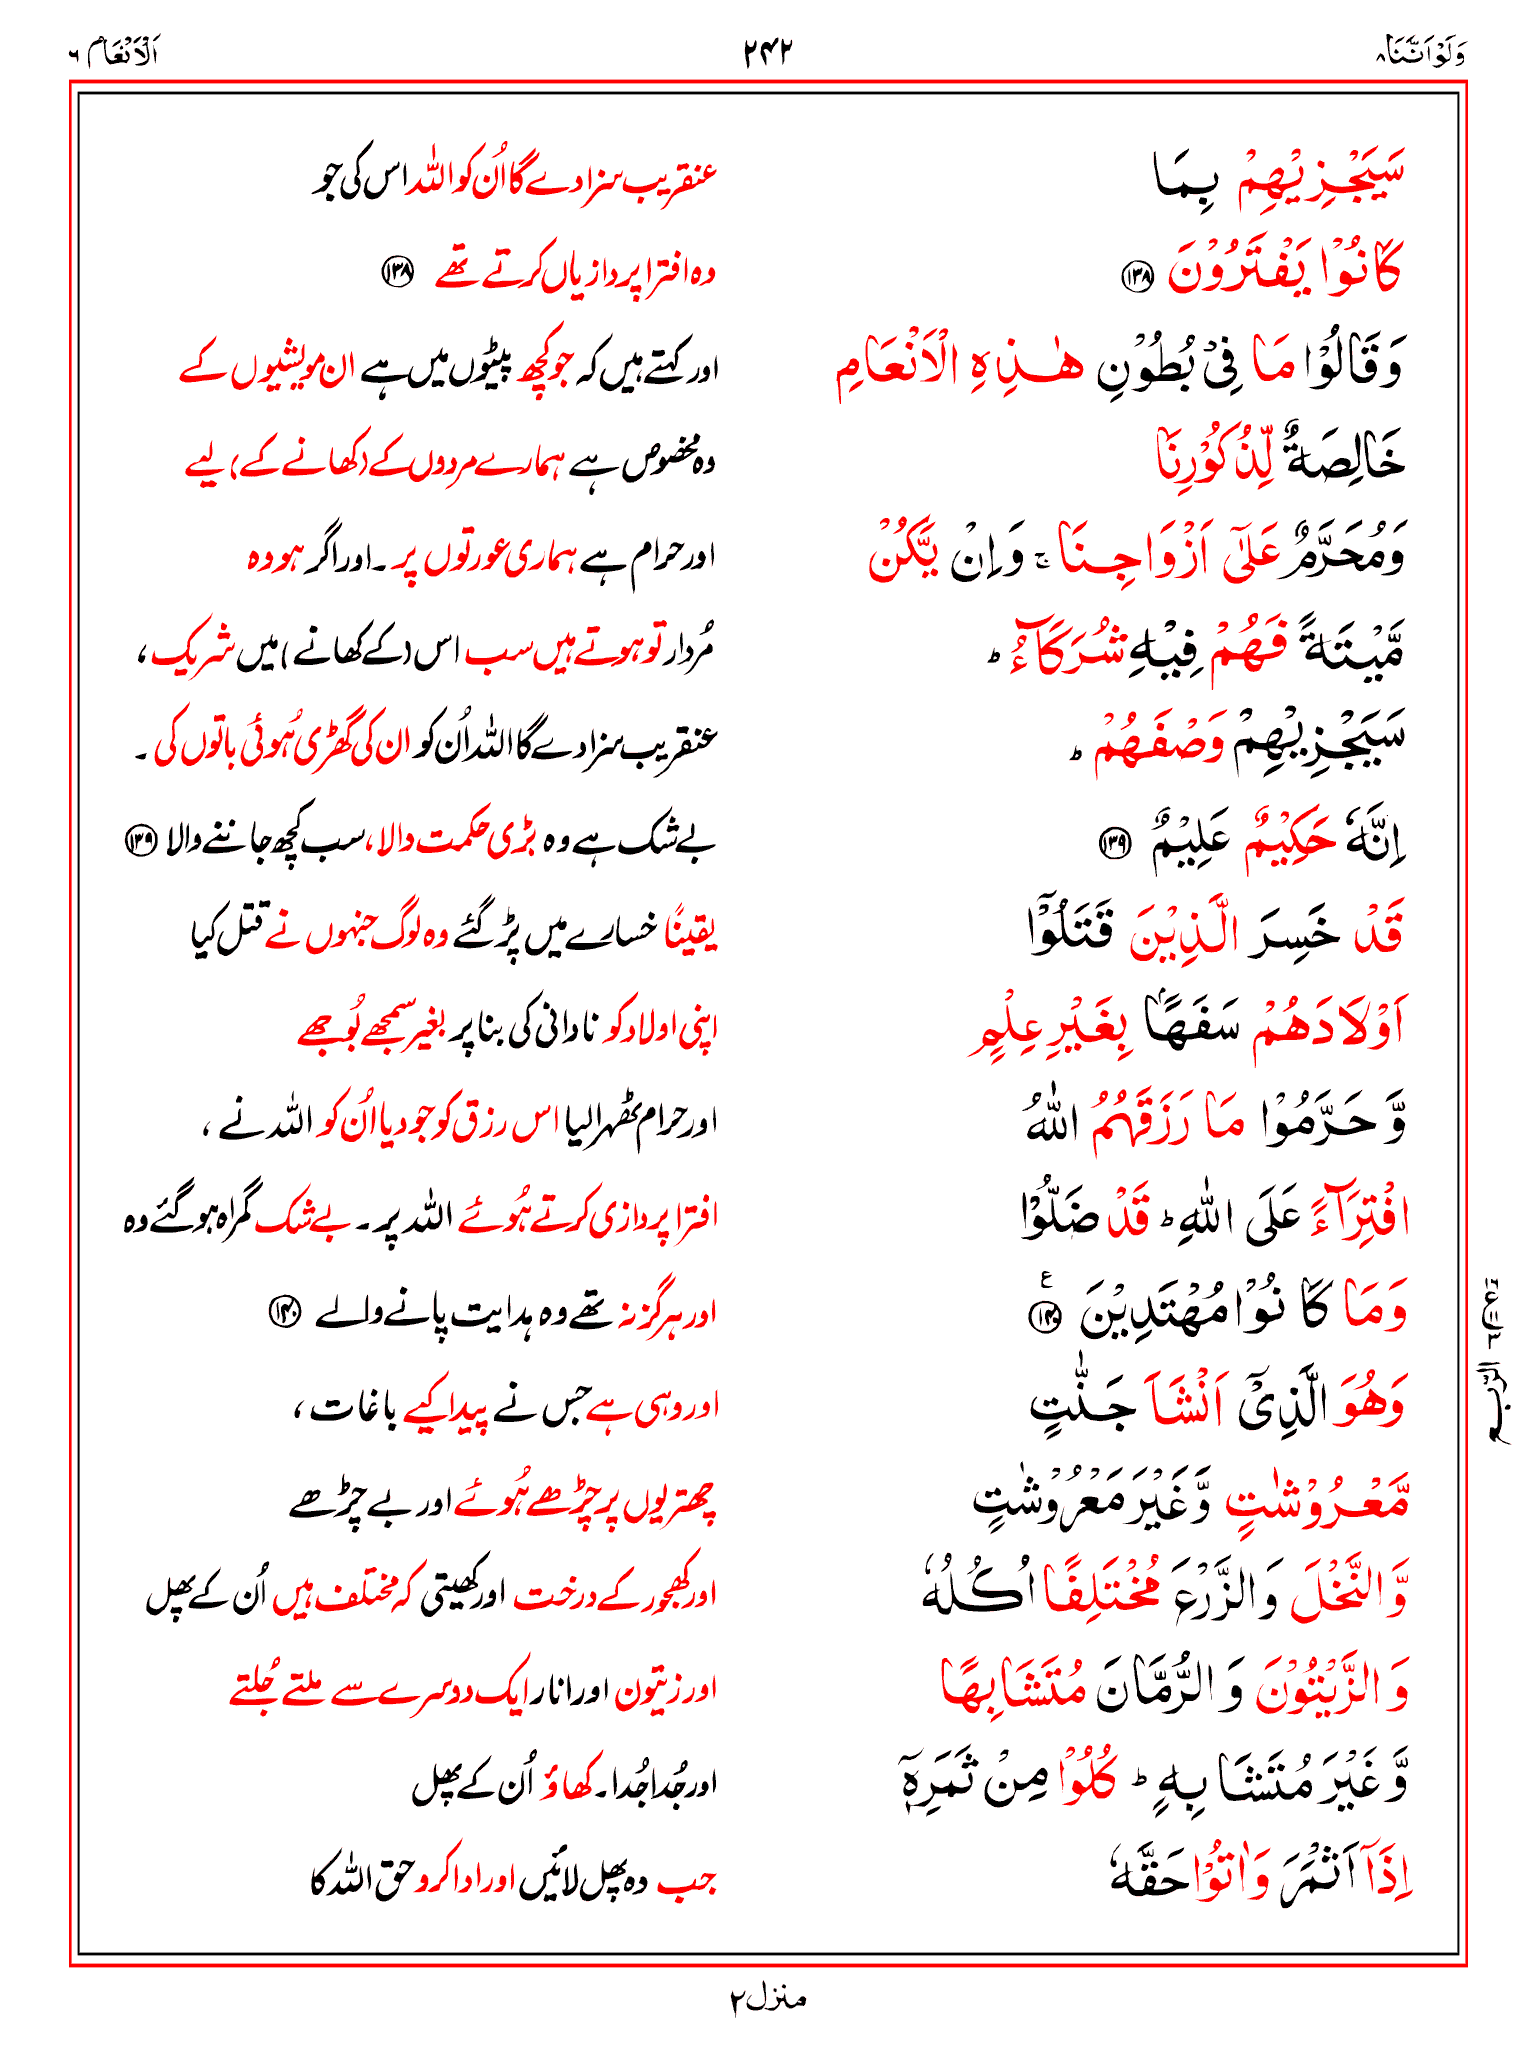 وَلَوْاَنَّنَا ۸
۲۴۲
اَلْاَنْعَام ۶
سَيَجْزِيْهِمْ بِمَا
عنقریب سزا دے گا اُن کو اللہ اس کی جو
كَانُوْا يَفْتَرُوْنَ ۱۳۸
وہ افترا پردازیاں کرتے تھے ۱۳۸
وَقَالُوْا مَا فِىْ بُطُوْنِ هٰذِهِ الْاَنْعَامِ
اور کہتے ہیں کہ جو کچھ پیٹوں میں ہے ان مویشیوں کے
خَالِصَةٌ لِّذُكُوْرِنَا
وہ مخصوص ہے ہمارے مردوں کے (کھانے کے) لیے
وَمُحَرَّمٌ عَلٰٓى اَزْوَاجِنَا ۚ وَاِنْ يَّكُنْ
اور حرام ہے ہماری عورتوں پر ۔ اور اگر ہو وہ
مَّيْتَةً فَهُمْ فِيْهِ شُرَكَآءُ ؕ
مُردار تو ہوتے ہیں سب اس (کے کھانے) میں شریک ،
سَيَجْزِيْهِمْ وَصْفَهُمْ ؕ
عنقریب سزا دے گا اللہ اُن کو ان کی گھڑی ہُوئی باتوں کی ۔
اِنَّهٗ حَكِيْمٌ عَلِيْمٌ ۱۳۹
بے شک ہے وہ بڑی حکمت والا، سب کچھ جاننے والا ۱۳۹
قَدْ خَسِرَ الَّذِيْنَ قَتَلُوْٓا
یقینًا خسارے میں پڑ گئے وہ لوگ جنہوں نے قتل کیا
اَوْلَادَهُمْ سَفَهًاۢ بِغَيْرِ عِلْمٍ
اپنی اولاد کو نادانی کی بنا پر بغیر سمجھے بُوجھے
وَّ حَرَّمُوْا مَا رَزَقَهُمُ اللّٰهُ
اور حرام ٹھہرا لیا اس رزق کو جو دیا اُن کو اللہ نے ،
افْتِرَآءً عَلَى اللّٰهِ ؕ قَدْ ضَلُّوْا
افترا پردازی کرتے ہُوئے اللہ پر ۔ بے شک گمراہ ہو گئے وہ
وَمَا كَانُوْا مُهْتَدِيْنَ ۱۴۰ ع
اور ہرگز نہ تھے وہ ہدایت پانے والے ۱۴۰
وَهُوَ الَّذِىْٓ اَنْشَاَ جَنّٰتٍ
اور وہی ہے جس نے پیدا کیے باغات ،
مَّعْرُوْشٰتٍ وَّغَيْرَ مَعْرُوْشٰتٍ
چھتریوں پر چڑھے ہُوئے اور بے چڑھے
وَّالنَّخْلَ وَالزَّرْعَ مُخْتَلِفًا اُكُلُهٗ
اور کھجور کے درخت اور کھیتی کہ مختلف ہیں اُن کے پھل
وَالزَّيْتُوْنَ وَالرُّمَّانَ مُتَشَابِهًا
اور زیتون اور انار ایک دوسرے سے ملتے جُلتے
وَّغَيْرَ مُتَشَابِهٍ ؕ كُلُوْا مِنْ ثَمَرِهٖٓ
اور جُدا جُدا ۔ کھاؤ اُن کے پھل
اِذَآ اَثْمَرَ وَاٰتُوْا حَقَّهٗ
جب وہ پھل لائیں اور ادا کرو حق اللہ کا
الرّبع
منزل ۲